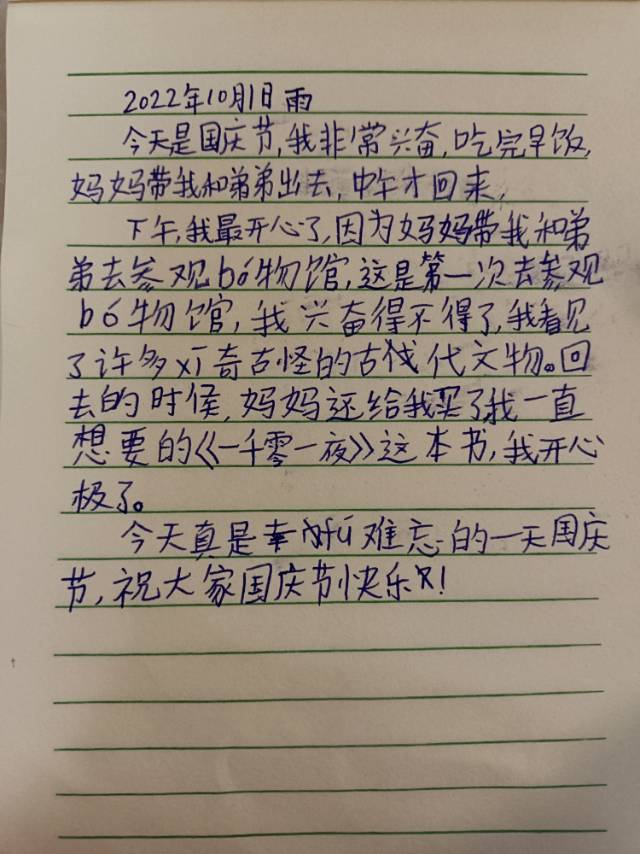 2022年10月1日雨
今天是国庆节,我非常兴奋,吃完早饭,
妈妈带我和弟弟出去,中午才回来,
下午,我最开心了,因为妈妈带我和弟
弟去参观bó物馆,这是第一次去参观
bó物馆,我兴奋得不得了,我看见
了许多xī奇古怪的古代文物。回
去的时候,妈妈还给我买了我一直
想要的《一千零一夜》这本书,我开心
极了。
今天真是幸fú难忘的一天国庆
节,祝大家国庆节快乐!